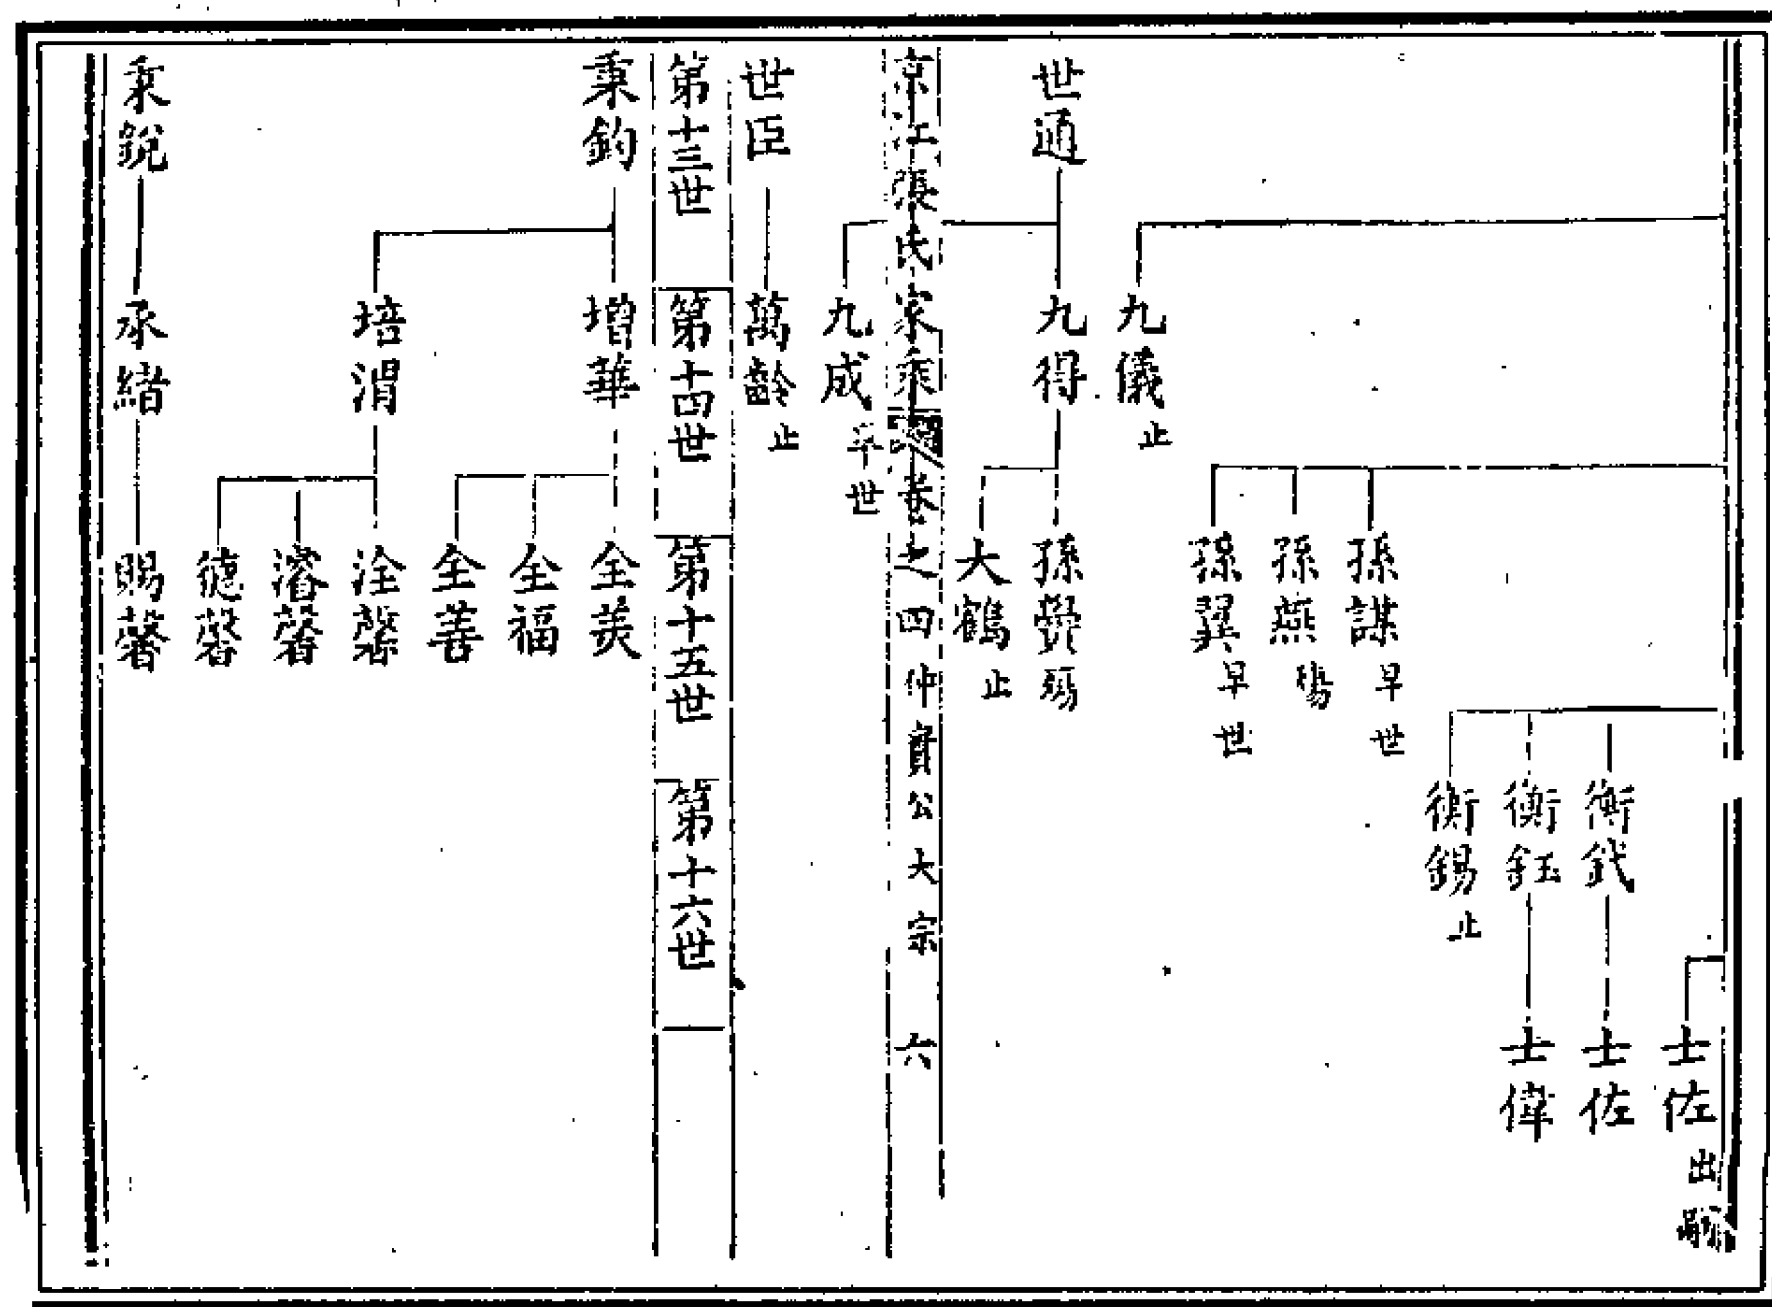 士佐 出嗣
衡鈛 士佐
衡鈺 士偉
衡錫 止
孫謀 早世
孫燕 殤
孫翼 早世
九儀 止
世通 九得 孫 殤
大鶴 止
九成 早世
京江張氏家乘 卷之四 仲賓公大宗 六
世臣 萬齡 止
第十三世 第十四世 第十五世 第十六世
秉鈞 增華 全美
全福
全善
培渭 洤馨
濬馨
德馨
秉銳 承緒 賜馨